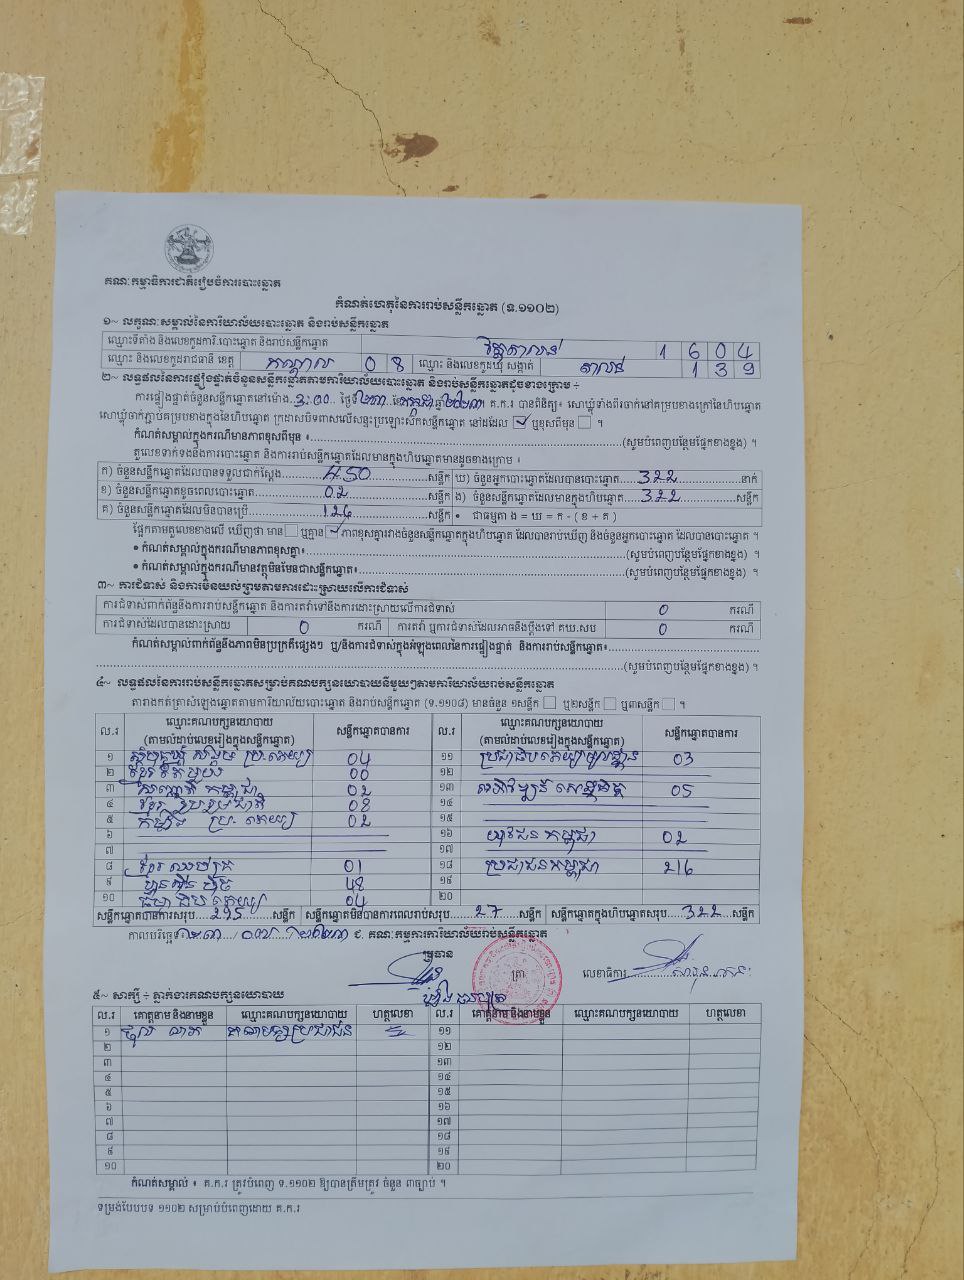 គណៈកម្មាធិការជាតិរៀបចំការបោះឆ្នោត
កំណត់ហេតុនៃការរាប់សន្លឹកឆ្នោត (ទ.១១០២)
១~ លក្ខណៈសម្គាល់នៃការិយាល័យបោះឆ្នោត និងរាប់សន្លឹកឆ្នោត
ឈ្មោះទីតាំង និងលេខកូដការិ.បោះឆ្នោត និងរាប់សន្លឹកឆ្នោត 1 6 0 4
ឈ្មោះ និងលេខកូដរាជធានី ខេត្ត កណ្តាល 0 8 ឈ្មោះ និងលេខកូដឃុំ សង្កាត់ 1 3 9
២~ លទ្ធផលនៃការផ្ទៀងផ្ទាត់ចំនួនសន្លឹកឆ្នោតតាមការិយាល័យបោះឆ្នោត និងរាប់សន្លឹកឆ្នោតដូចខាងក្រោម ÷
ការផ្ទៀងផ្ទាត់ចំនួនសន្លឹកឆ្នោតនៅម៉ោង..3:00..ថ្ងៃទី២៣ខែកក្កដាឆ្នាំ២០២៣។ គ.ក.រ បានពិនិត្យ៖ សោឃ្លុំទាំងពីរចាក់នៅគម្របខាងក្រៅនៃហិបឆ្នោត
សោឃ្លុំចាក់ភ្ជាប់គម្របខាងក្នុងនៃហិបឆ្នោត ក្រដាសបិទពាសលើសន្ទះប្រឡោះស៊កសន្លឹកឆ្នោត នៅដដែល ឬខុសពីមុន ។
កំណត់សម្គាល់ក្នុងករណីមានភាពខុសពីមុន ៖ (សូមបំពេញបន្ថែមផ្នែកខាងខ្នង) ។
តួលេខទាក់ទងនឹងការបោះឆ្នោត និងការរាប់សន្លឹកឆ្នោតដែលមានក្នុងហិបឆ្នោតមានដូចខាងក្រោម ៖
ក) ចំនួនសន្លឹកឆ្នោតដែលបានទទួលជាក់ស្តែង 450 សន្លឹក ឃ) ចំនួនអ្នកបោះឆ្នោតដែលបានបោះឆ្នោត 322 នាក់
ខ) ចំនួនសន្លឹកឆ្នោតខូចពេលបោះឆ្នោត 02 សន្លឹក ង) ចំនួនសន្លឹកឆ្នោតដែលមានក្នុងហិបឆ្នោត 322 សន្លឹក
គ) ចំនួនសន្លឹកឆ្នោតដែលមិនបានប្រើ 126 សន្លឹក • ជាធម្មតា ង = ឃ = ក - ( ខ + គ )
ផ្អែកតាមតួលេខខាងលើ ឃើញថា មាន ឬគ្មាន ភាពខុសគ្នារវាងចំនួនសន្លឹកឆ្នោតក្នុងហិបឆ្នោត ដែលបានរាប់ឃើញ និងចំនួនអ្នកបោះឆ្នោត ដែលបានបោះឆ្នោត ។
• កំណត់សម្គាល់ក្នុងករណីមានភាពខុសគ្នា៖ (សូមបំពេញបន្ថែមផ្នែកខាងខ្នង) ។
• កំណត់សម្គាល់ក្នុងករណីមានវត្ថុមិនមែនជាសន្លឹកឆ្នោត៖ (សូមបំពេញបន្ថែមផ្នែកខាងខ្នង) ។
៣~ ការជំទាស់ និងការមិនយល់ព្រមតាមការដោះស្រាយលើការជំទាស់
ការជំទាស់ពាក់ព័ន្ធនឹងការរាប់សន្លឹកឆ្នោត និងការតវ៉ាទៅនឹងការដោះស្រាយលើការជំទាស់ 0 ករណី
ការជំទាស់ដែលបានដោះស្រាយ 0 ករណី ការតវ៉ា ឬការជំទាស់ដែលអាចនឹងប្តឹងទៅ គឃ.សប 0 ករណី
កំណត់សម្គាល់ពាក់ព័ន្ធនឹងភាពមិនប្រក្រតីផ្សេងៗ ឬ/និងការជំទាស់ក្នុងអំឡុងពេលនៃការផ្ទៀងផ្ទាត់ និងការរាប់សន្លឹកឆ្នោត៖
(សូមបំពេញបន្ថែមផ្នែកខាងខ្នង) ។
៤~ លទ្ធផលនៃការរាប់សន្លឹកឆ្នោតសម្រាប់គណបក្សនយោបាយនីមួយៗតាមការិយាល័យរាប់សន្លឹកឆ្នោត
តារាងកត់ត្រាសំឡេងឆ្នោតតាមការិយាល័យបោះឆ្នោត និងរាប់សន្លឹកឆ្នោត (ទ.១១០៨) មានចំនួន ១សន្លឹក ឬ២សន្លឹក ឬ៣សន្លឹក ។
ល.រ ឈ្មោះគណបក្សនយោបាយ សន្លឹកឆ្នោតបានការ ល.រ ឈ្មោះគណបក្សនយោបាយ សន្លឹកឆ្នោតបានការ
(តាមលំដាប់លេខរៀងក្នុងសន្លឹកឆ្នោត) (តាមលំដាប់លេខរៀងក្នុងសន្លឹកឆ្នោត)
១ 04 ១១ 03
២ 00 ១២
៣ កម្ពុជា 02 ១៣ 05
៤ ខ្មែរ រួបរួមជាតិ 08 ១៤
៥ 02 ១៥
៦ ១៦ យុវជន កម្ពុជា 02
៧ ១៧
៨ ខ្មែរ 01 ១៨ ប្រជាជនកម្ពុជា 216
៩ ហ្វ៊ុនស៊ិនប៉ិច 48 ១៩
១០ 04 ២០
សន្លឹកឆ្នោតបានការសរុប 295 សន្លឹក សន្លឹកឆ្នោតមិនបានការពេលរាប់សរុប 27 សន្លឹក សន្លឹកឆ្នោតក្នុងហិបឆ្នោតសរុប 322 សន្លឹក
កាលបរិច្ឆេទ ២៣ / ០៧ / ២០២៣ ជ. គណៈកម្មការការិយាល័យរាប់សន្លឹកឆ្នោត
ប្រធាន ត្រា លេខាធិការ
៥~ សាក្សី ÷ ភ្នាក់ងារគណបក្សនយោបាយ
ល.រ គោត្តនាម និងនាមខ្លួន ឈ្មោះគណបក្សនយោបាយ ហត្ថលេខា ល.រ គោត្តនាម និងនាមខ្លួន ឈ្មោះគណបក្សនយោបាយ ហត្ថលេខា
១ គណបក្សប្រជាជន ១១
២ ១២
៣ ១៣
៤ ១៤
៥ ១៥
៦ ១៦
៧ ១៧
៨ ១៨
៩ ១៩
១០ ២០
កំណត់សម្គាល់ ៖ គ.ក.រ ត្រូវបំពេញ ទ.១១០២ ឱ្យបានត្រឹមត្រូវ ចំនួន ៣ច្បាប់ ។
ទម្រង់បែបបទ ១១០២ សម្រាប់បំពេញដោយ គ.ក.រ